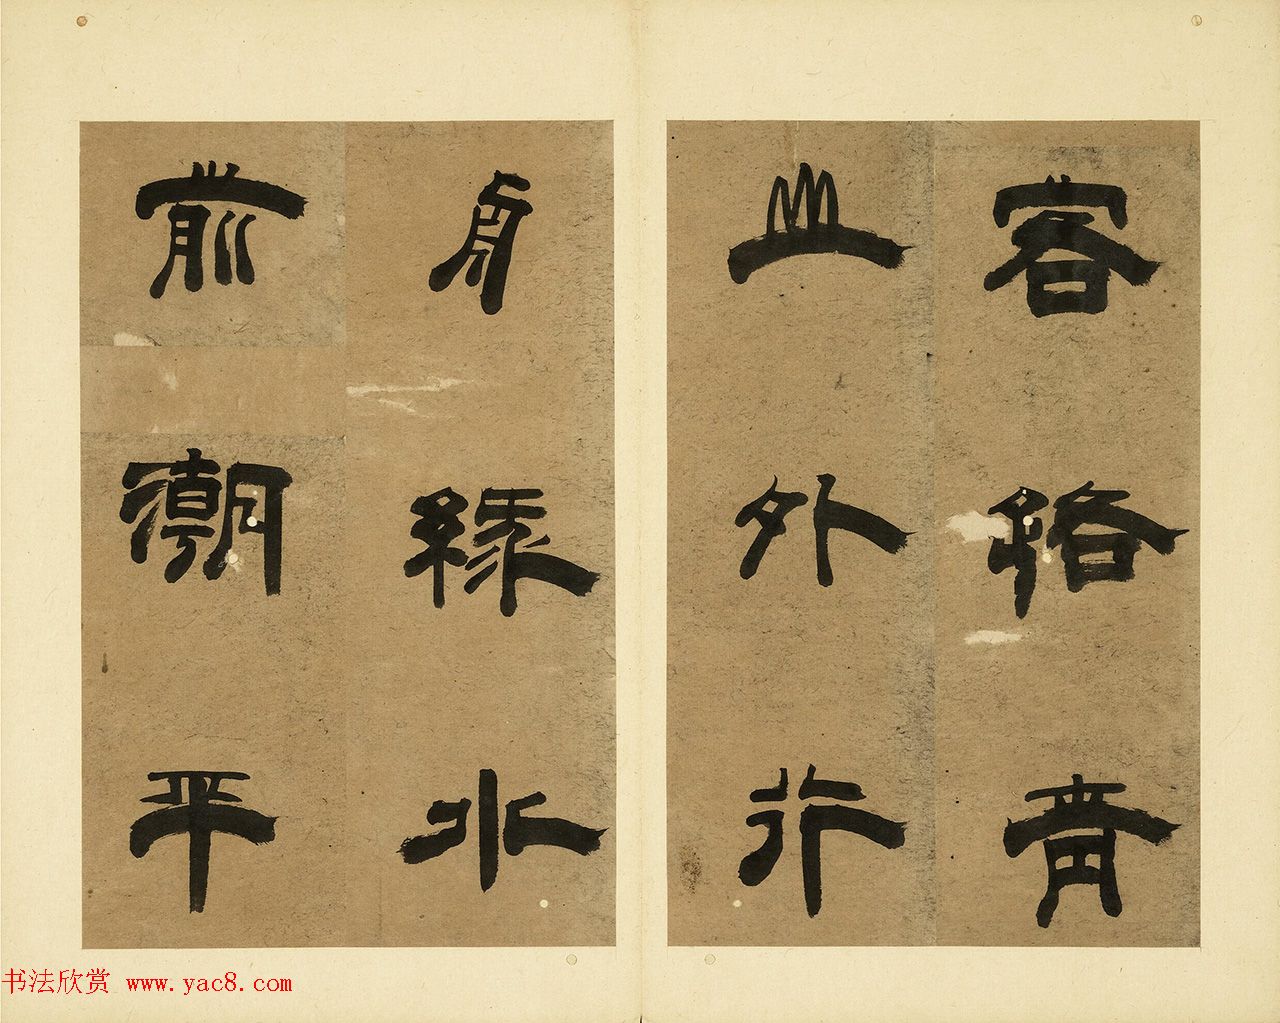 客路青
山外行
舟綠水
前潮平
书法欣赏 www.yac8.com